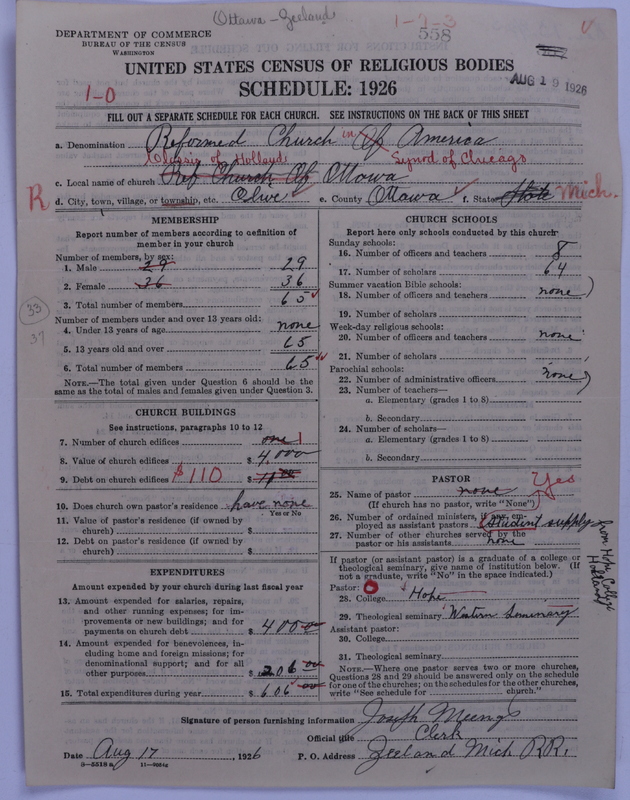 Ottawa - Zeeland
1-7-3
558
DEPARTMENT OF COMMERCE
BUREAU OF THE CENSUS
WASHINGTON
UNITED STATES CENSUS OF RELIGIOUS BODIES
AUG 19 1926
SCHEDULE: 1926
1-0
FILL OUT A SEPARATE SCHEDULE FOR EACH CHURCH. SEE INSTRUCTIONS ON THE BACK OF THIS SHEET
a. Denomination Reformed Church in Of America
Classis of Holland Synod of Chicago
c. Local name of church Ref Church Of Ottawa
R d. City, town, village, or township, etc. Olive e. County Ottawa f. State State Mich.
MEMBERSHIP
Report number of members according to definition of member in your church
Number of members, by sex:
1. Male 29 29
2. Female 36 36
3. Total number of members 65
Number of members under and over 13 years old:
33
37
4. Under 13 years of age none
5. 13 years old and over 65
6. Total number of members 65
NOTE.—The total given under Question 6 should be the same as the total of males and females given under Question 3.
CHURCH BUILDINGS
See instructions, paragraphs 10 to 12
7. Number of church edifices one 1
8. Value of church edifices $ 4,000
9. Debt on church edifices $110 $
10. Does church own pastor's residence have none
Yes or No
11. Value of pastor's residence (if owned by
church) $
12. Debt on pastor's residence (if owned by
church) $
EXPENDITURES
Amount expended by your church during last fiscal year
13. Amount expended for salaries, repairs,
and other running expenses; for im-
provements or new buildings; and for
payments on church debt $ 400 00
14. Amount expended for benevolences, in-
cluding home and foreign missions; for
denominational support; and for all
other purposes $ 206 00
15. Total expenditures during year $ 606 00
CHURCH SCHOOLS
Report here only schools conducted by this church
Sunday schools:
16. Number of officers and teachers 8
17. Number of scholars 64
Summer vacation Bible schools:
18. Number of officers and teachers none
19. Number of scholars
Week-day religious schools:
20. Number of officers and teachers none
21. Number of scholars
Parochial schools:
22. Number of administrative officers none
23. Number of teachers—
a. Elementary (grades 1 to 8)
b. Secondary
24. Number of scholars—
a. Elementary (grades 1 to 8)
b. Secondary
PASTOR Yes
25. Name of pastor none
(If church has no pastor, write "None")
26. Number of ordained ministers, if any, em-
ployed as assistant pastors student supply from Hope College Holland
27. Number of other churches served by the
pastor or his assistants none
If pastor (or assistant pastor) is a graduate of a college or theological seminary, give name of institution below. (If not a graduate, write "No" in the space indicated.)
Pastor: O
28. College Hope
29. Theological seminary Western Seminary
Assistant pastor:
30. College
31. Theological seminary
NOTE.—Where one pastor serves two or more churches, Questions 28 and 29 should be answered only on the schedule for one of the churches; on the schedules for the other churches, write "See schedule for church."
Signature of person furnishing information Joseph Meengs
Official title Clerk
Date Aug 17, 1926 P. O. Address Zeeland Mich RR1